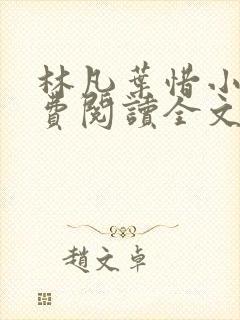 林凡葉惜小
費閱讀全文
趙文卓